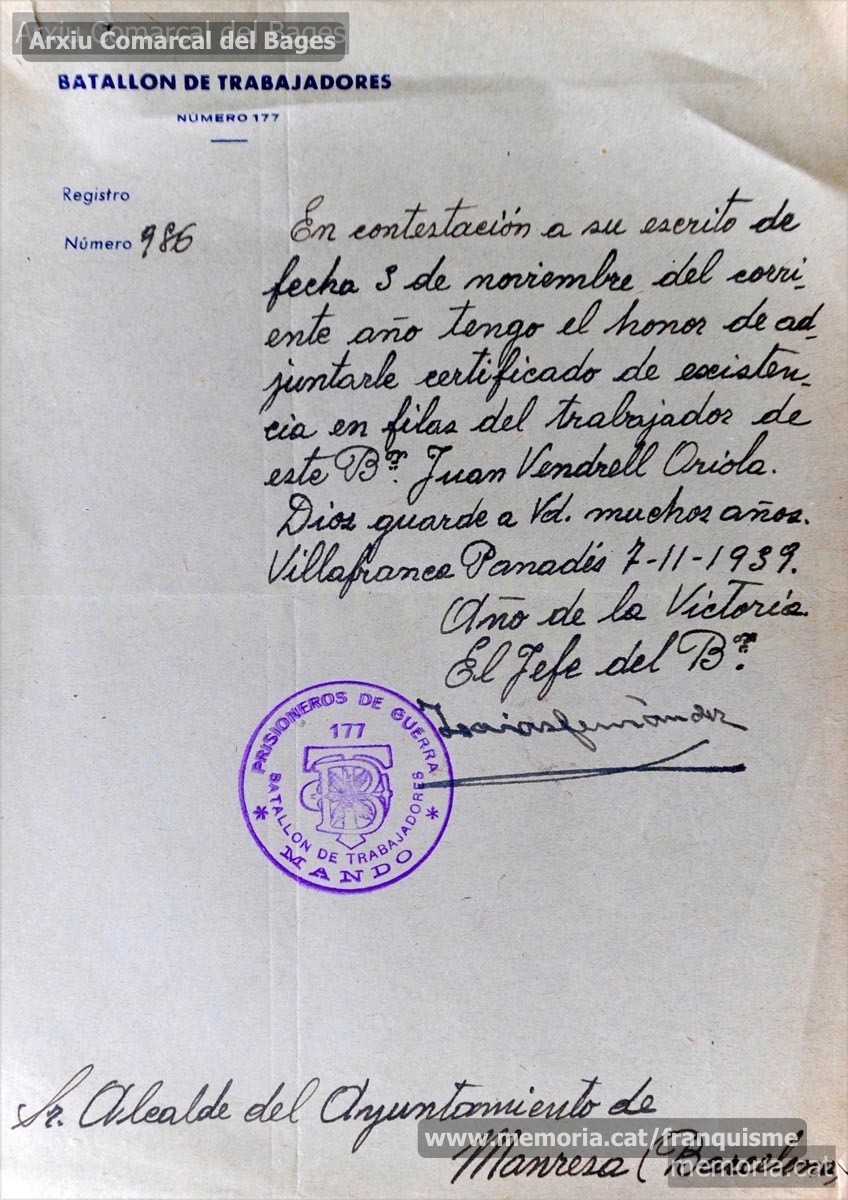 Arxiu Comarcal del Bages
Arxiu Comarcal del Bages
BATALLON DE TRABAJADORES
NÚMERO 177
Registro
Número 986
En contestación a su escrito de
fecha 3 de noviembre del corri-
ente año tengo el honor de ad-
juntarle certificado de existen-
cia en filas del trabajador de
este Bᵒⁿ. Juan Vendrell Oriola.
Dios guarde a Vd. muchos años.
Villafranca Panadés 7-11-1939.
Año de la Victoria.
El Jefe del Bᵒⁿ.
Isaias Fernández
PRISIONEROS DE GUERRA
177
BATALLON DE TRABAJADORES
* MANDO *
Sr. Alcalde del Ayuntamiento de
Manresa (Barcelona)
www.memoria.cat/franquisme
memoria.cat